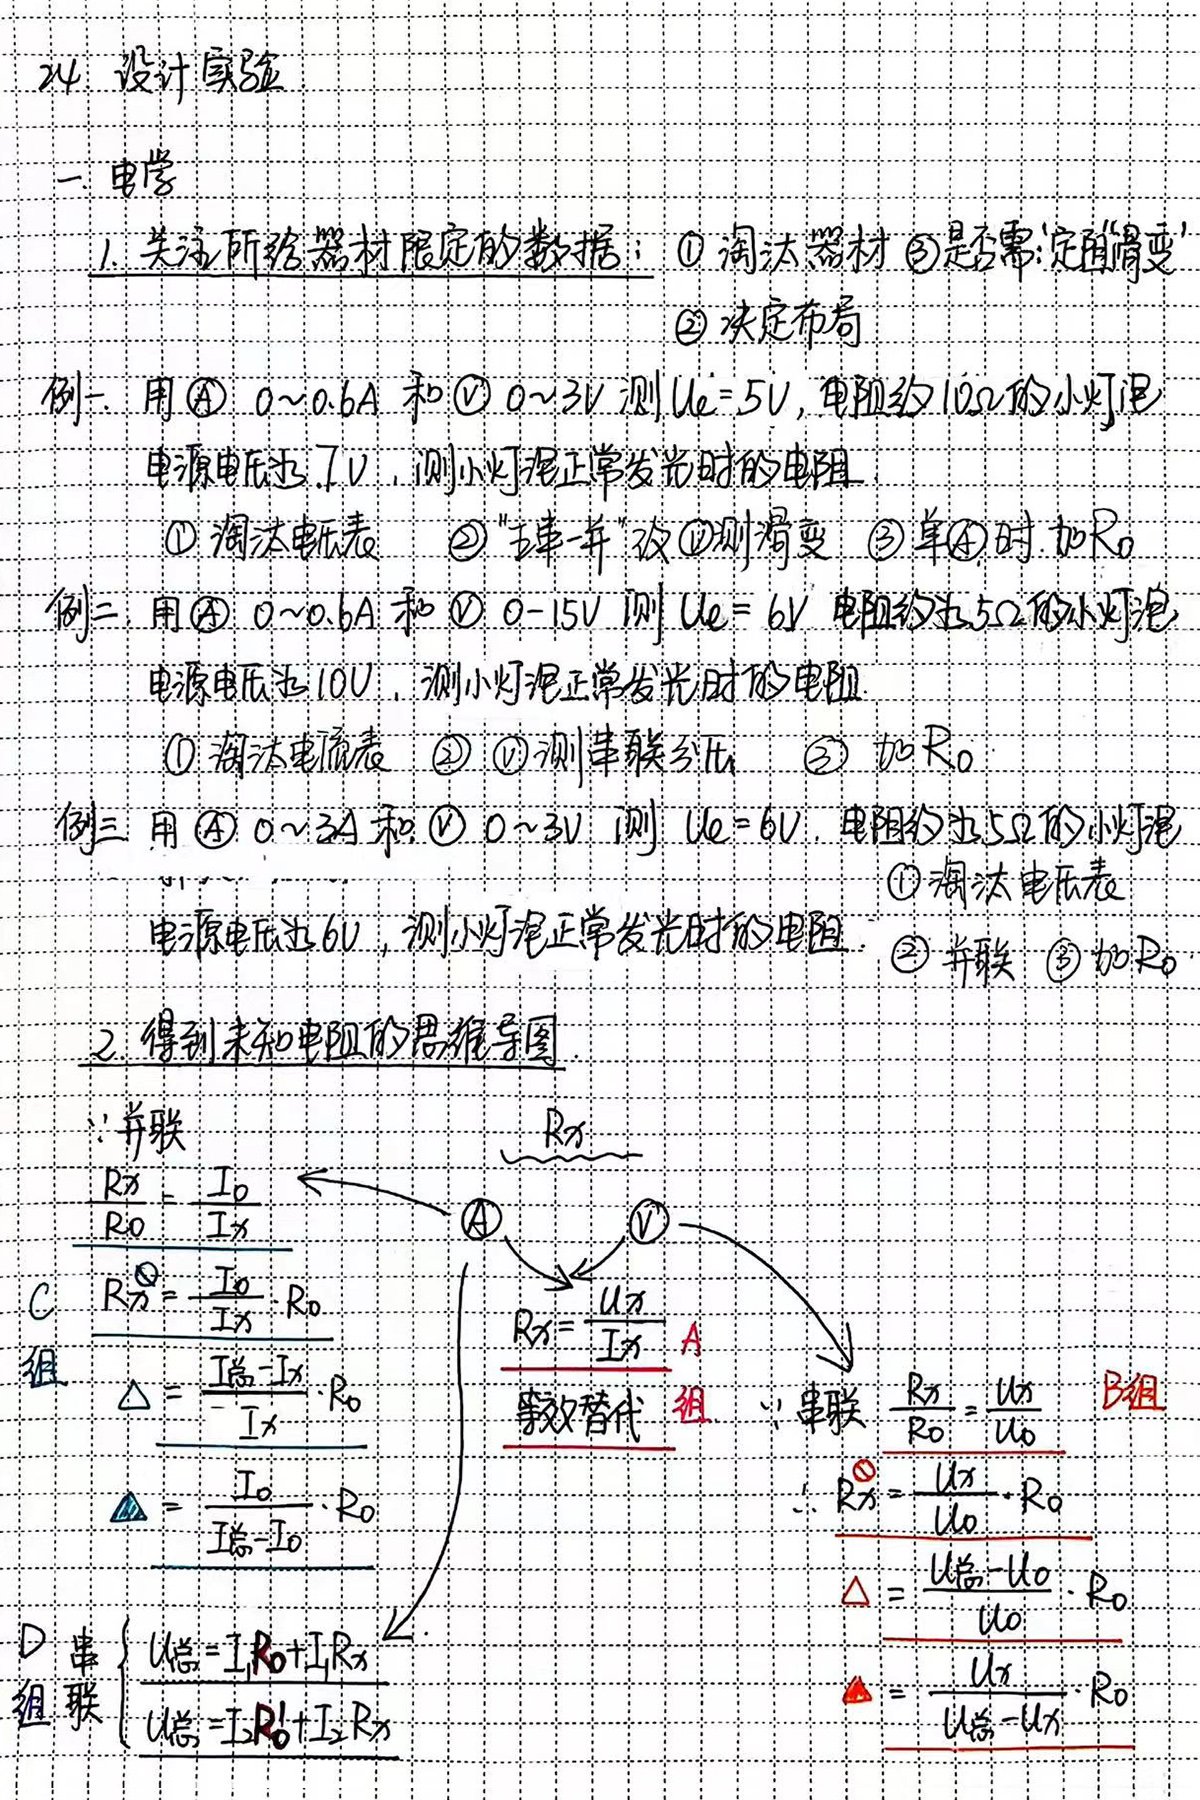 24. 设计实验
一. 电学
1. 关注所给器材限定的数据: ① 淘汰器材 ③是否需“定值”“滑变”
② 决定布局
例一. 用Ⓐ 0~0.6A 和 Ⓥ 0~3V 测 Ue=5V, 电阻约10Ω的小灯泡
电源电压为7V, 测小灯泡正常发光时的电阻.
① 淘汰电压表 ② “主串一并”改Ⓥ测滑变 ③ 单Ⓐ时 加R0
例二. 用Ⓐ 0~0.6A 和 Ⓥ 0-15V 测 Ue=6V 电阻约为5Ω的小灯泡
电源电压为10V, 测小灯泡正常发光时的电阻.
① 淘汰电流表 ② Ⓥ测串联分压 ③ 加R0
例三 用Ⓐ 0~3A 和 Ⓥ 0~3V 测 Ue=6V. 电阻约为5Ω的小灯泡
① 淘汰电压表
电源电压为6V, 测小灯泡正常发光时的电阻.
② 并联 ③ 加R0
2. 得到未知电阻的思维导图.
∵并联
Rx
Rx/R0 = I0/Ix
Ⓐ Ⓥ
C组
Rx = I0/Ix · R0
△ = (I总-Ix)/Ix · R0
▲ = I0/(I总-I0) · R0
Rx = Ux/Ix
A组
等效替代
B组
∵ 串联 Rx/R0 = Ux/U0
∴ Rx = Ux/U0 · R0
△ = (U总-U0)/U0 · R0
▲ = Ux/(U总-Ux) · R0
D组 串联
U总=I1R0+I1Rx
U总=I2R0'+I2Rx